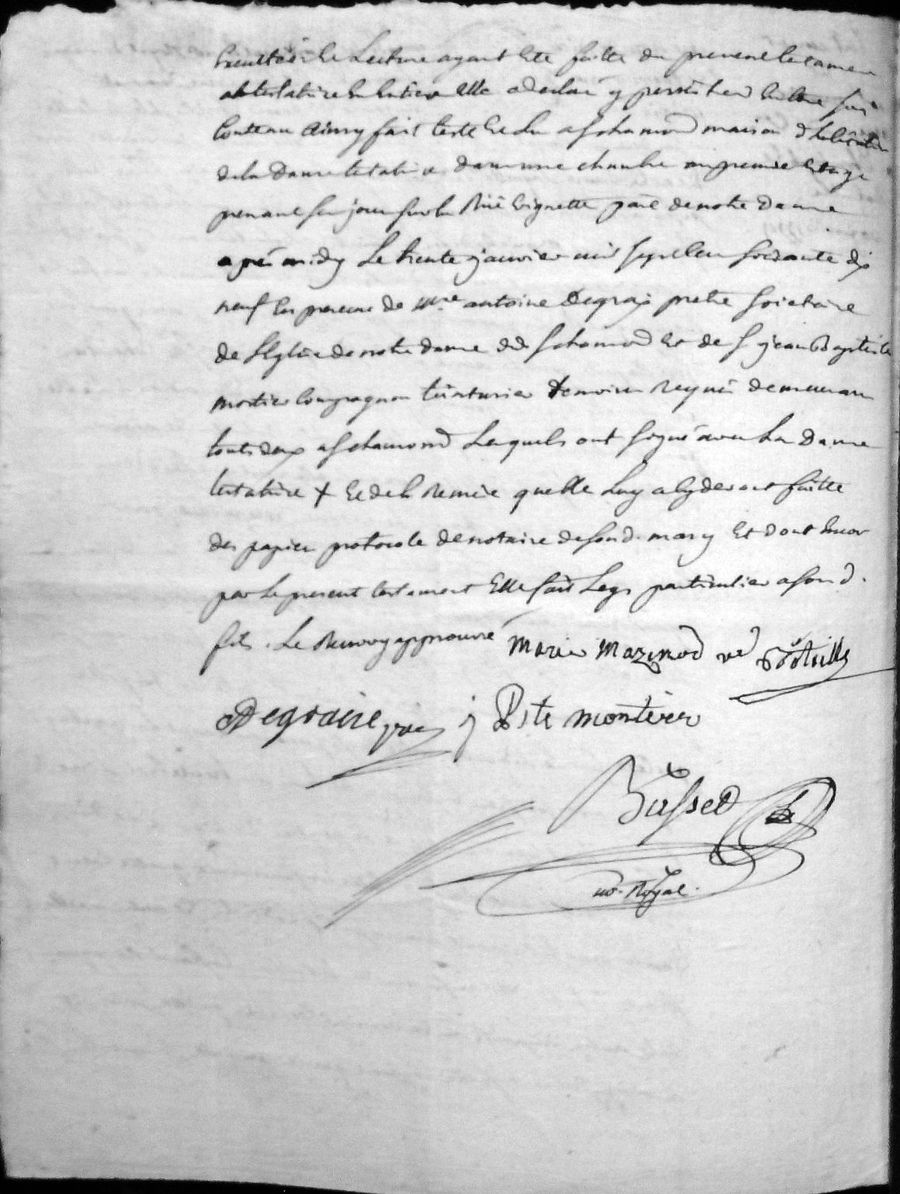 executés et Lecture ayant eté faitte du present testament
a la testatrice en entier elle a declaré y persister et etre sa
volonté ainsy fait testé et lu a st chamond maison d'habitation
de la Dame testatrice dans une chambre au premier etage
prenant son jour sur la Ruë vignette paroisse de notre Dame
aprés midy Le trente janvier mil sept cent soixante dix
neuf En presence de mre antoine Degraix pretre societaire
de L'Eglise de notre dame de st chamond et de sr jean Baptiste
montier Compagnon teinturier temoins Requis demeurant
tous deux a st chamond Lesquels ont signé avec La Dame
testatrice + et de la Remise quelle luy a cy devant faitte
des papier protocole de notaire de son d. mary Et dont encor
par Le present testament Elle fait Legs particulier a son d.
fils. Le Renvoy approuvé
marie mazenod ve
Degraixe ptre j Bste monteier
Busset
no. Royal.